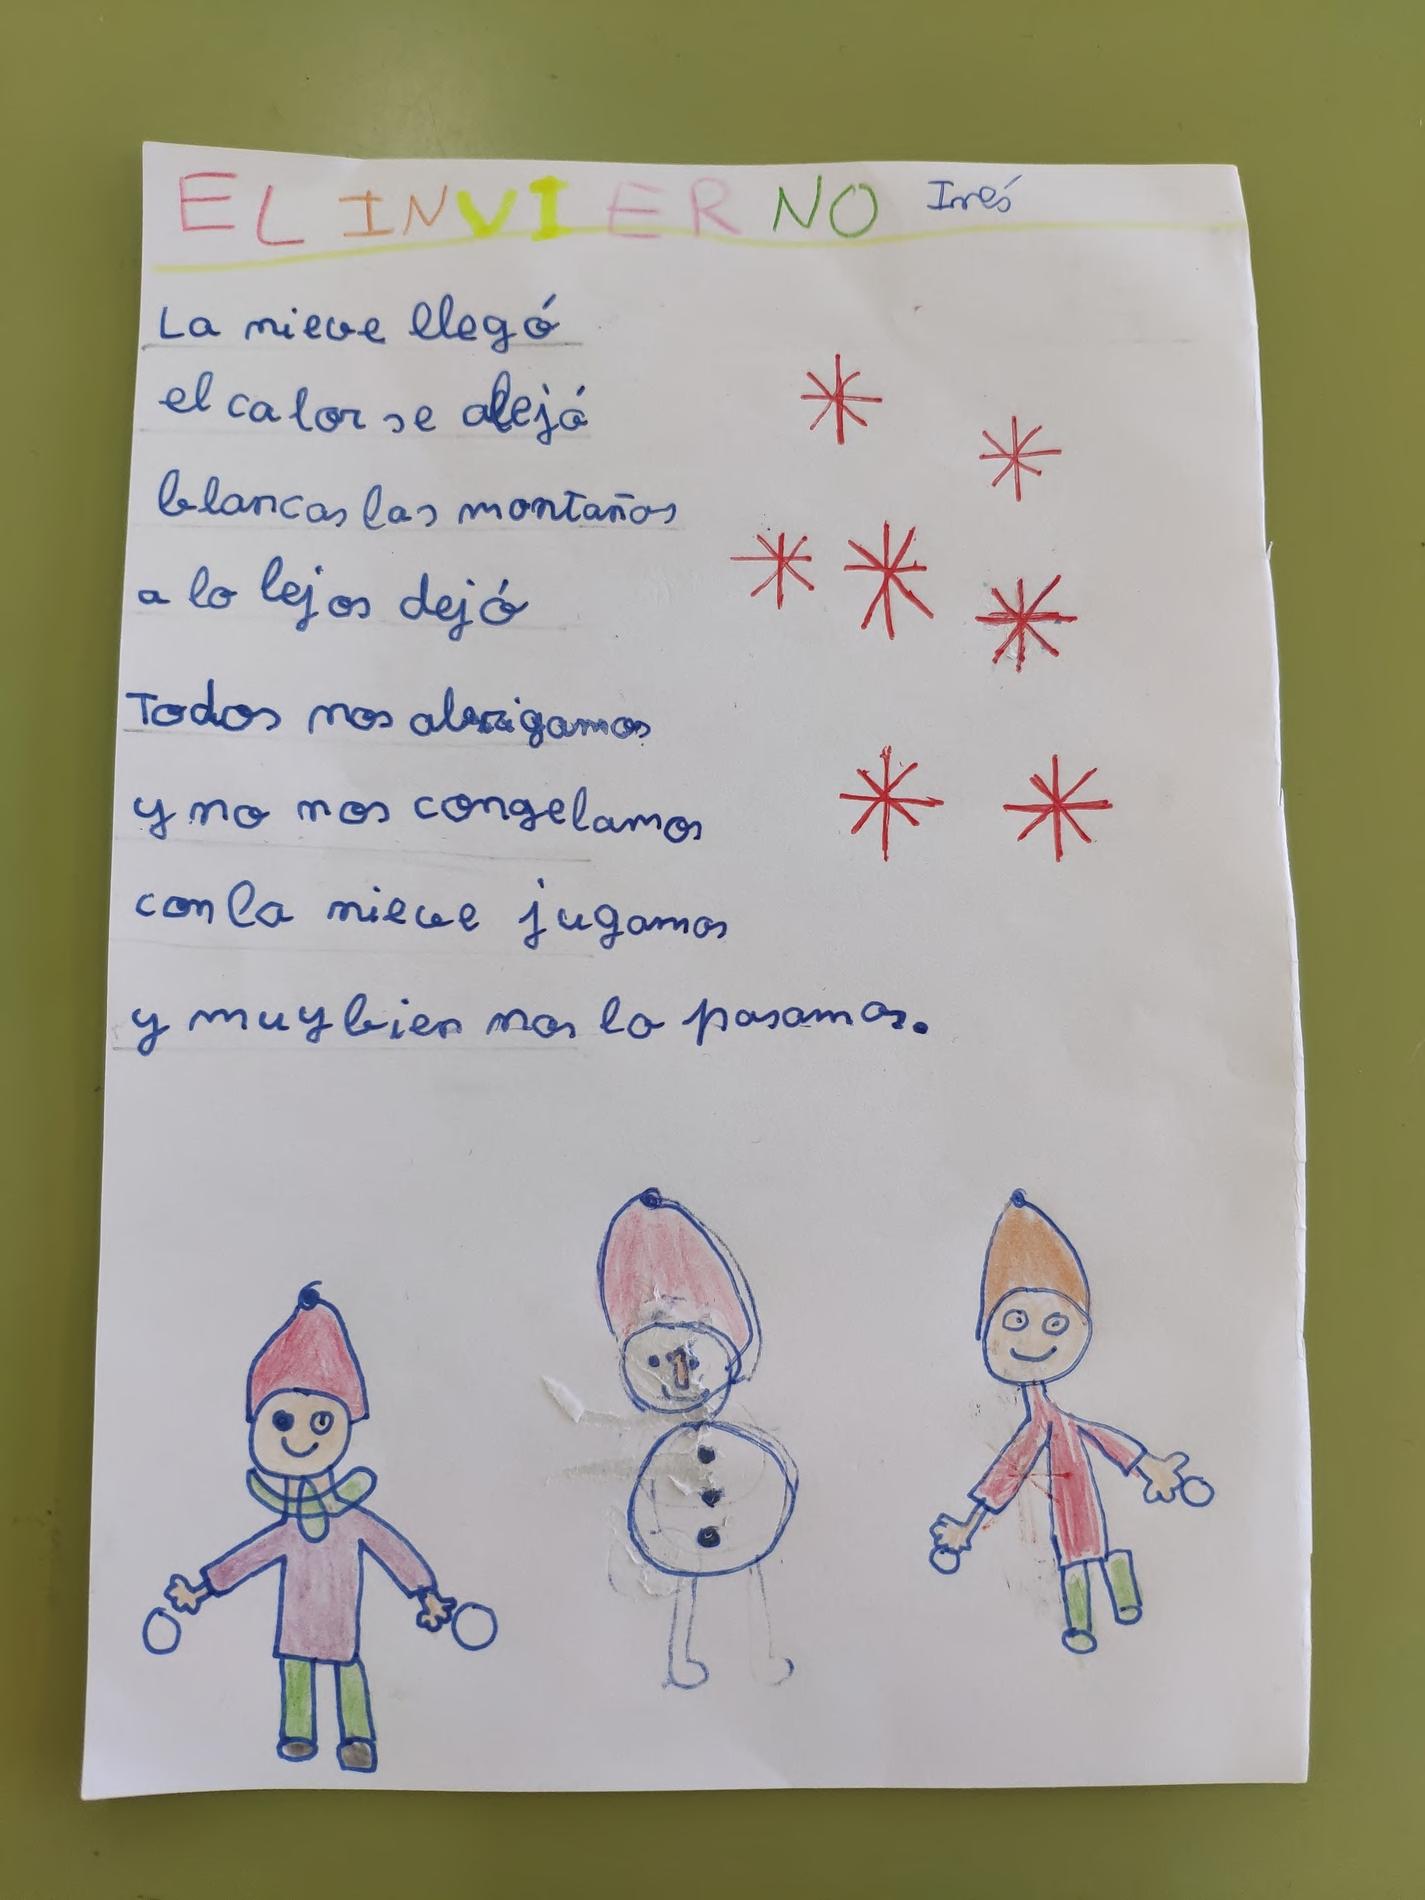 EL INVIERNO Inés
La nieve llegó
el calor se alejó
blancas las montañas
a lo lejos dejó
Todos nos abrigamos
y no nos congelamos
con la nieve jugamos
y muy bien nos lo pasamos.